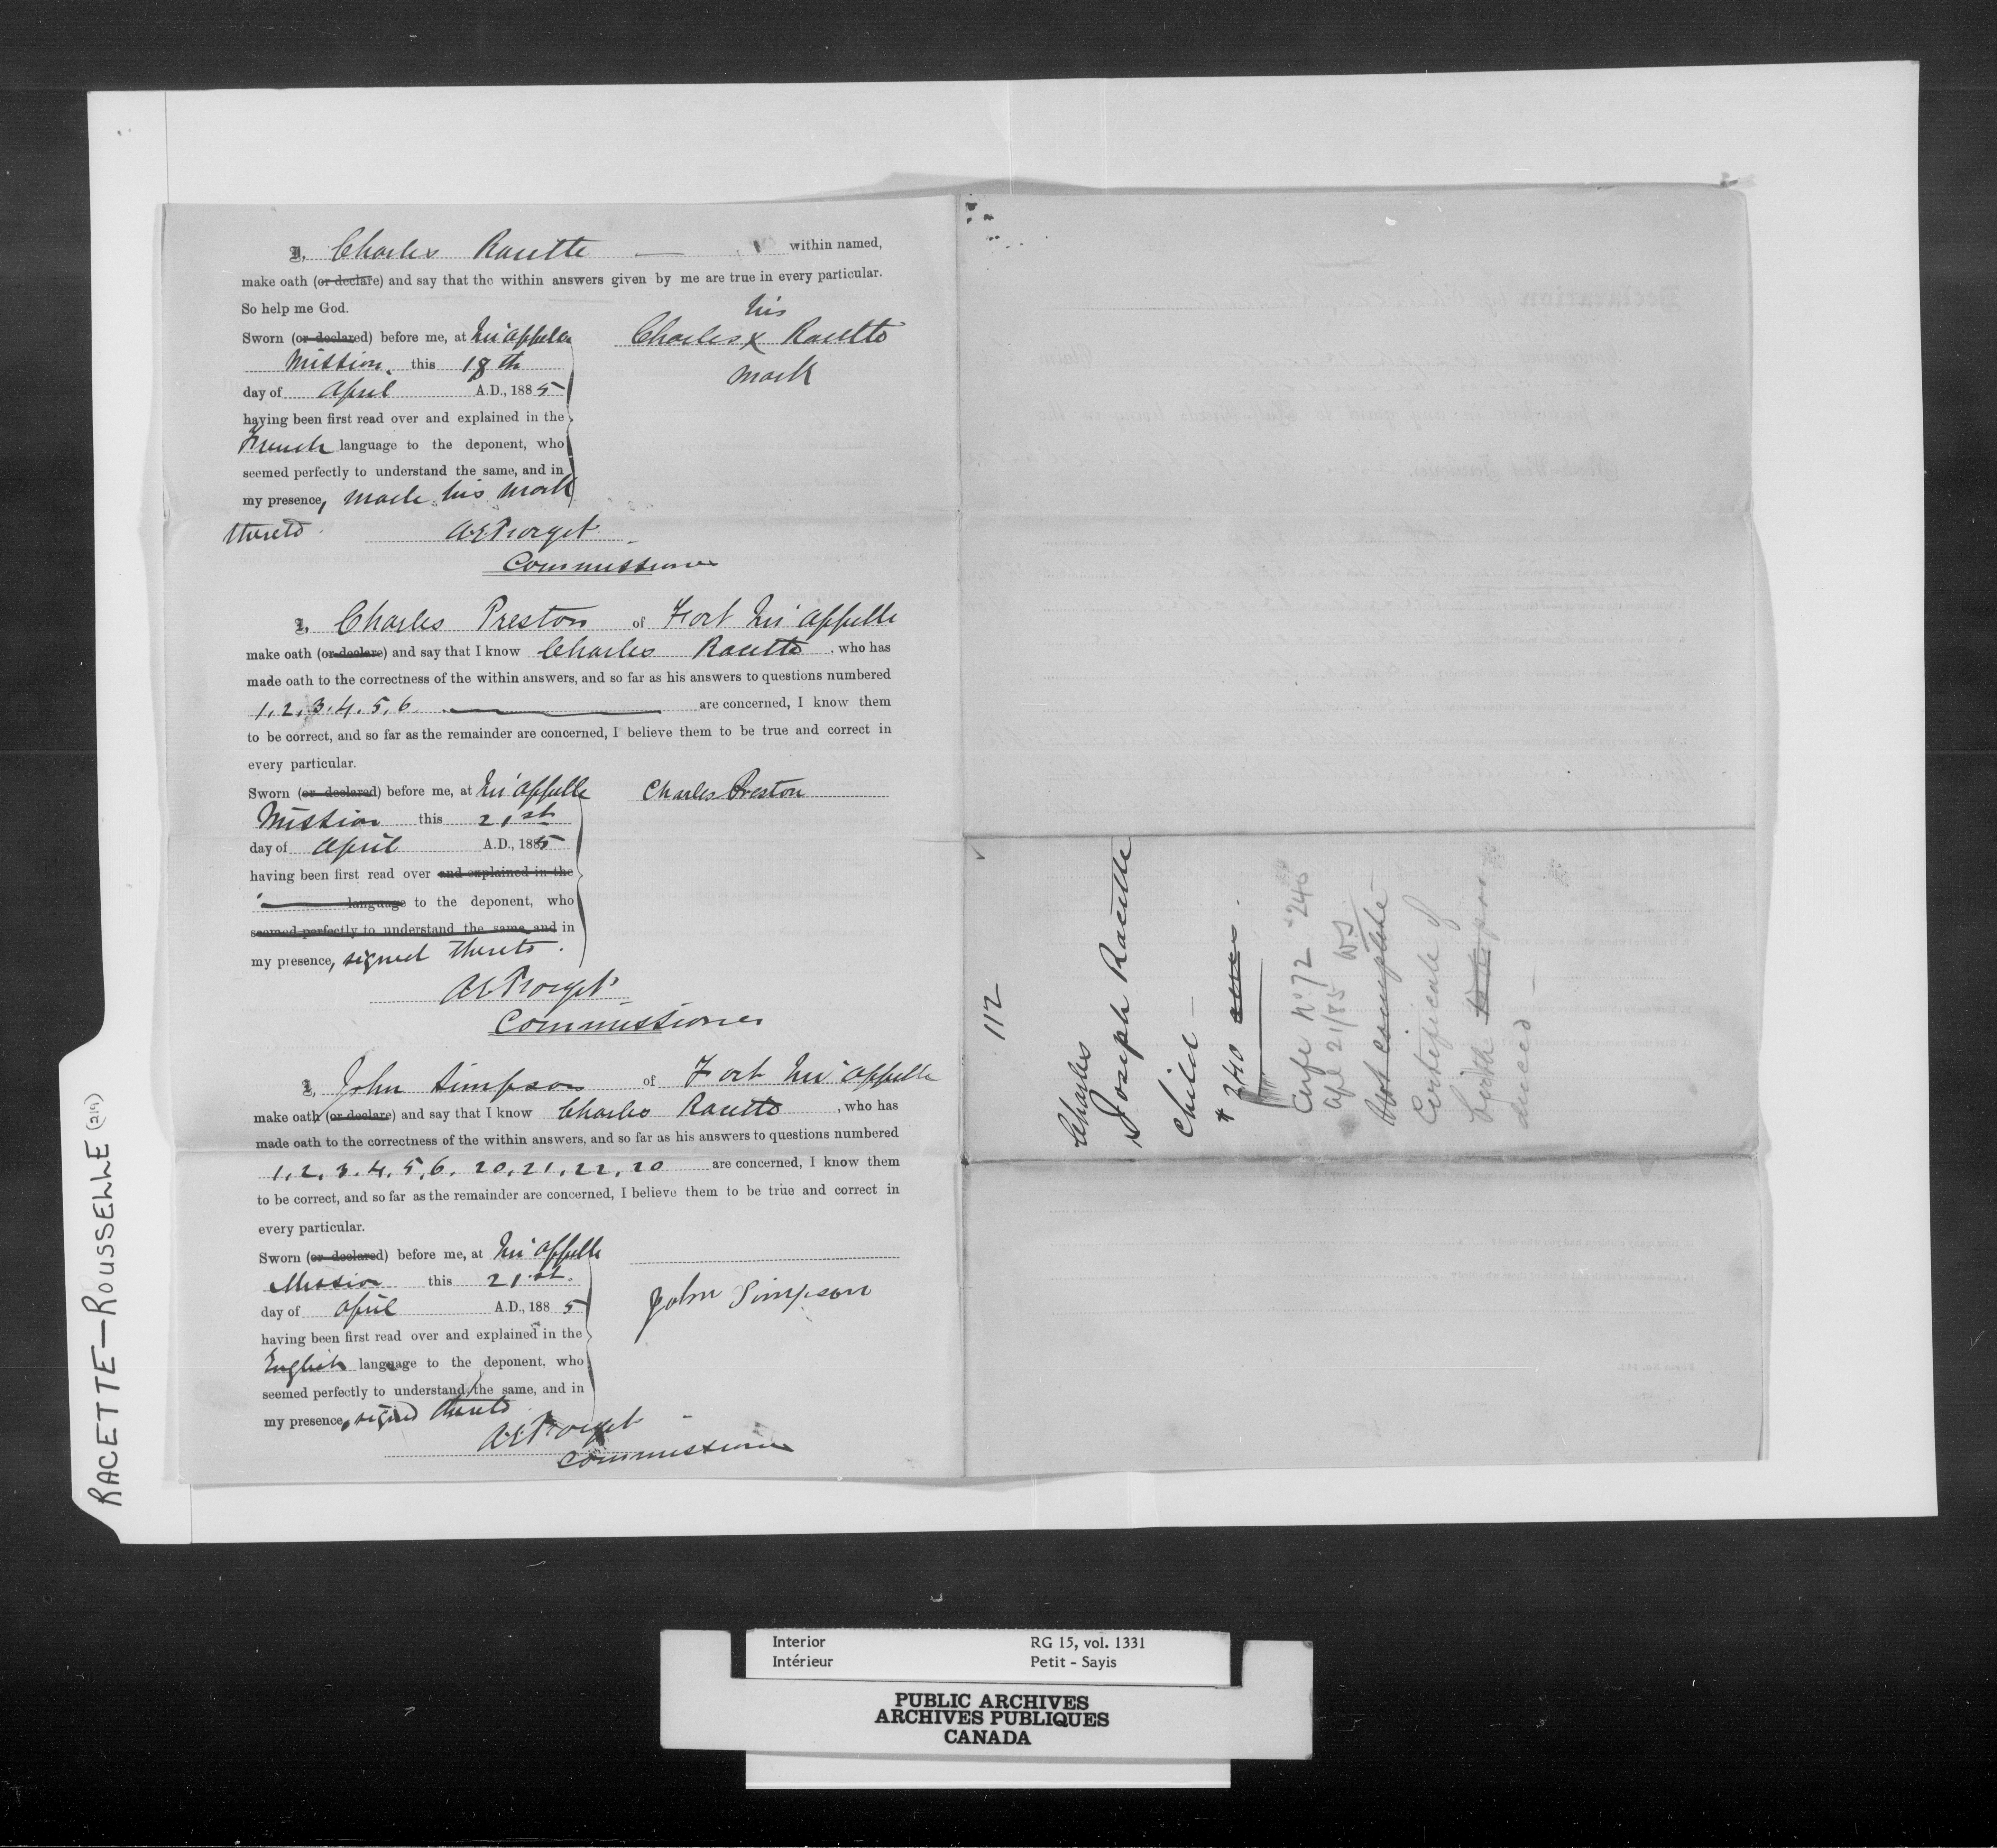 I, Charles Racette — within named,
make oath (or declare) and say that the within answers given by me are true in every particular.
So help me God.
his
Sworn (or declared) before me, at Qu'appelle
Charles X Racette
Mission, this 18th
mark
day of April A.D., 1885
having been first read over and explained in the
French language to the deponent, who
seemed perfectly to understand the same, and in
my presence, made his mark
thereto.
A E Forget
Commissioner
I, Charles Preston of Fort Qu'appelle
make oath (or declare) and say that I know Charles Racette, who has
made oath to the correctness of the within answers, and so far as his answers to questions numbered
1, 2, 3, 4, 5, 6 — are concerned, I know them
to be correct, and so far as the remainder are concerned, I believe them to be true and correct in
every particular.
Sworn (or declared) before me, at Qu'appelle
Charles Preston
Mission this 21st
day of April A.D., 1885
having been first read over and explained in the
language to the deponent, who
seemed perfectly to understand the same, and in
my presence, signed thereto.
A E Forget
Commissioner
I, John Simpson of Fort Qu'appelle
make oath (or declare) and say that I know Charles Racette, who has
made oath to the correctness of the within answers, and so far as his answers to questions numbered
1, 2, 3, 4, 5, 6, 20, 21, 22, 20 are concerned, I know them
to be correct, and so far as the remainder are concerned, I believe them to be true and correct in
every particular.
Sworn (or declared) before me, at Qu'appelle
Mission this 21st.
John Simpson
day of April A.D., 1885
having been first read over and explained in the
English language to the deponent, who
seemed perfectly to understand the same, and in
my presence, signed thereto
A E Forget
Commissioner
112
Charles
Joseph Racette
Child —
$ 240
Certfe No 72 $240
Apl 21/85 WS
Not complete —
Certificate of
birth to be pro
duced —
RACETTE—ROUSSELLE (219)
Interior
Intérieur
RG 15, vol. 1331
Petit - Sayis
PUBLIC ARCHIVES
ARCHIVES PUBLIQUES
CANADA